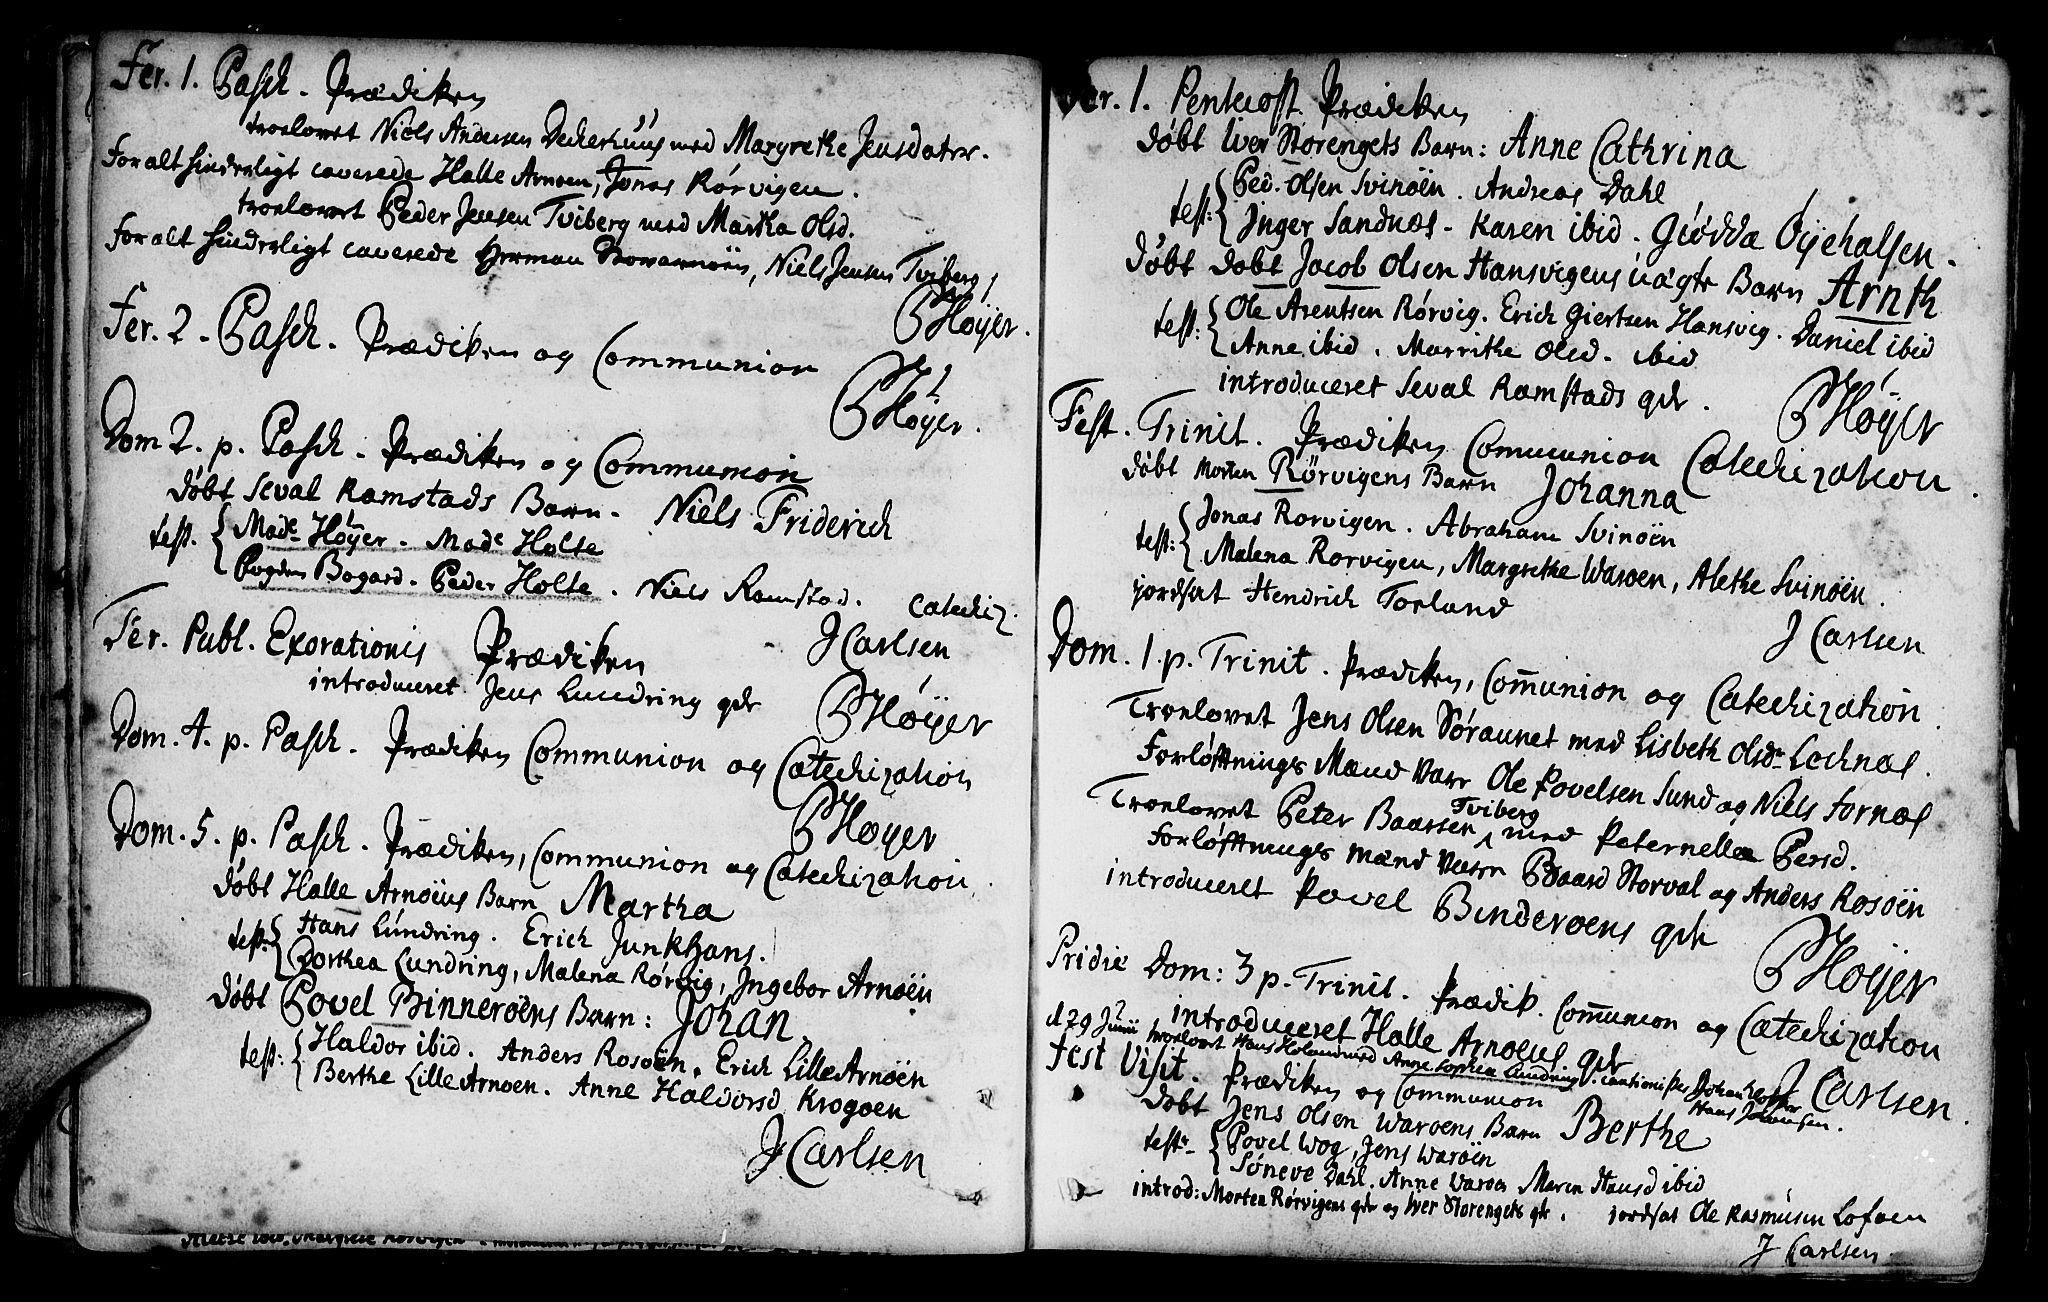 Fer. 1. Pasch. Prædiken
troelovet Niels Andersen Deckerhuus med Margrethe Jensdater.
For alt hinderligt caverede Halle Arnøen, Jonas Rørvigen.
troelovet Peder Jensen Tviberg med Martha Olsd.
For alt hinderligt caverede Herman, Niels Jensen Tviberg
PHøyer.
Fer. 2. Pasch. Prædiken og Communion
PHøyer.
Dom 2. p. Pasch. Prædiken og Communion
døbt Seval Ramstads Barn. Niels Friderich
test. Made Høyer. Made Holte
Bogard. Peder Holte. Niels Ramstad. Catechiz.
J Carlsen
Fer. Publ. Exorationis Prædiken
introduceret Jens Lundring qdr
PHøyer
Dom. 4. p. Pasch. Prædiken Communion og Catechization
PHøyer
Dom. 5. p. Pasch. Prædiken, Communion og Catechization.
døbt Halle Arnøens Barn Martha
test. Hans Lundring. Erich Junkhans.
Dorthea Lundring, Malena Rørvig, Ingebor Arnøen
døbt Povel Binnerøens Barn: Johan
test: Haldor ibid. Anders Rosøen, Erich Lille Arnøen
Berthe Lille Arnøen. Anne Haldorsd Krogøen
J Carlsen
Fer. 1. Pentecost. Prædiken
døbt Iver Størengets Barn: Anne Cathrina
test: Ped. Olsen Svinøen. Andreas Dahl
Inger Sandnæs. Karen ibid. Giødda Øyehalsen.
døbt døbt Jacob Olsen Hansvigens uægte Barn Arnth
test: Ole Arentsen Rørvig. Erich Giertsen Hansvig. Daniel ibid
Anne ibid. Marrithe Olsd. ibid
introduceret Seval Ramstads qdr.
PHøyer
Fest. Trinit. Prædiken Communion Catechization.
døbt Morten Rørvigens Barn Johanna
test: Jonas Rørvigen. Abraham Svinøen
Malena Rørvigen, Margrethe Warøen, Alethe Svinøen.
jordsat Hendrich Torland
J Carlsen
Dom. 1. p. Trinit. Prædiken, Com̄union og Catechization.
Troelovet Jens Olsen Søraunet med Lisbeth Olsdr Lechnæs.
Forløfftnings Mænd Varr Ole Povelsen Sund og Niels Fornæs
Troelovet Peter Baarsen Tviberg med Peternelle Persd.
Forløfftnings mænd Varr Baard Storval og Anders Rosøen
introduceret Povel Binderøens qdr
PHøyer
Pridie Dom: 3 p. Trinit. Prædik. Com̄union og Catechization
introduceret Halle Arnøens qdr
J Carlsen.
d 29 Junii troelovet Hans Holand med Anne Sophia Lundring. cautionister Johan
Hans Johansen.
Fest Visit. Prædiken og Communion
døbt Jens Olsen Warøens Barn Berthe
test. Povel Wog, Jens Warøen
Søneve Dahl. Anne Varøe Maren Hansd ibid
introd: Morten Rørvigens qdr og Iver Størengets qdr. jordsat Ole Rasmusen Loføen
J Carlsen.